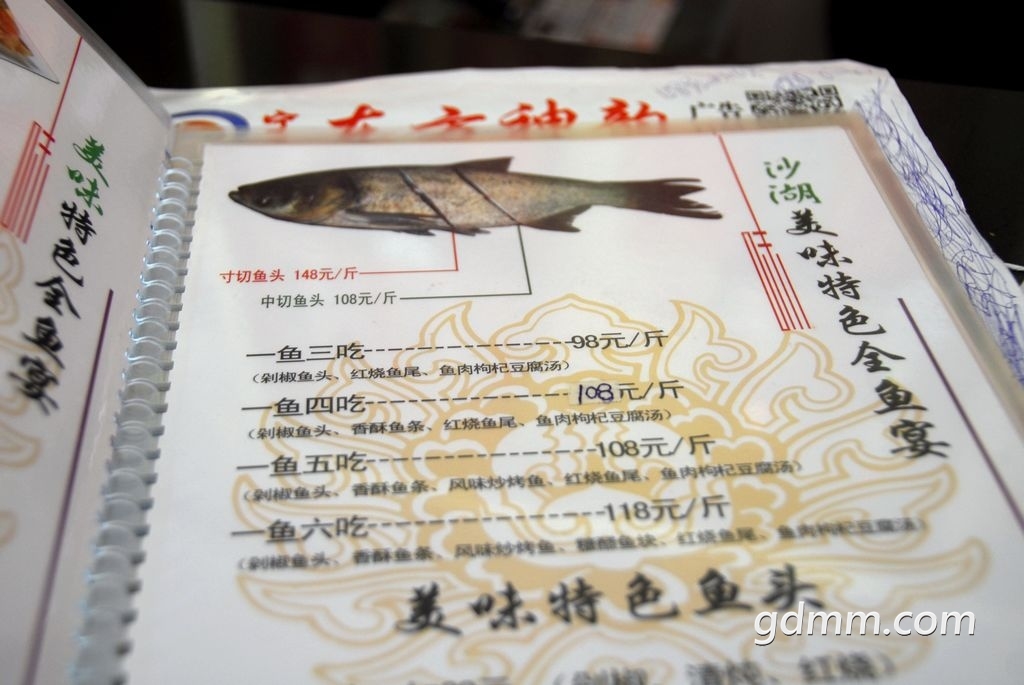 美味特色全鱼宴
广告
沙湖美味特色全鱼宴
寸切鱼头 148元/斤
中切鱼头 108元/斤
一鱼三吃------------------98元/斤
(剁椒鱼头、红烧鱼尾、鱼肉枸杞豆腐汤)
一鱼四吃------------------108元/斤
(剁椒鱼头、香酥鱼条、红烧鱼尾、鱼肉枸杞豆腐汤)
一鱼五吃------------------108元/斤
(剁椒鱼头、香酥鱼条、风味炒烤鱼、红烧鱼尾、鱼肉枸杞豆腐汤)
一鱼六吃------------------118元/斤
(剁椒鱼头、香酥鱼条、风味炒烤鱼、糖醋鱼块、红烧鱼尾、鱼肉枸杞豆腐汤)
美味特色鱼头
(剁椒、清炖、红烧)
gdmm.com